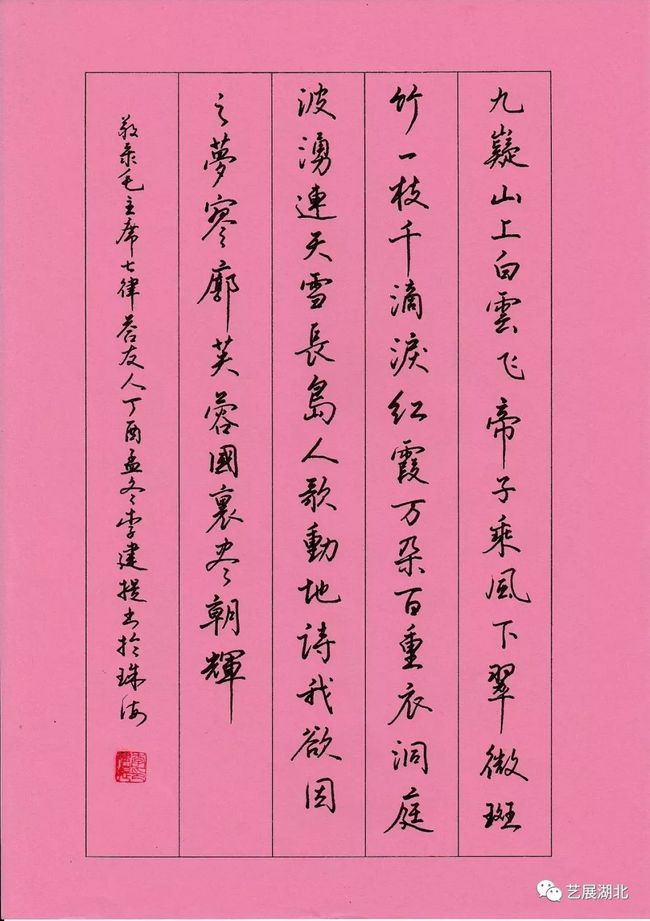 九嶷山上白雲飞帝子乘风下翠微斑
竹一枝千滴淚红霞万朶百重衣洞庭
波湧連天雪長島人歌動地詩我欲因
之夢寥廓芙蓉國裏尽朝輝
敬录毛主席七律答友人丁酉孟冬李建提书於珠海
艺展湖北